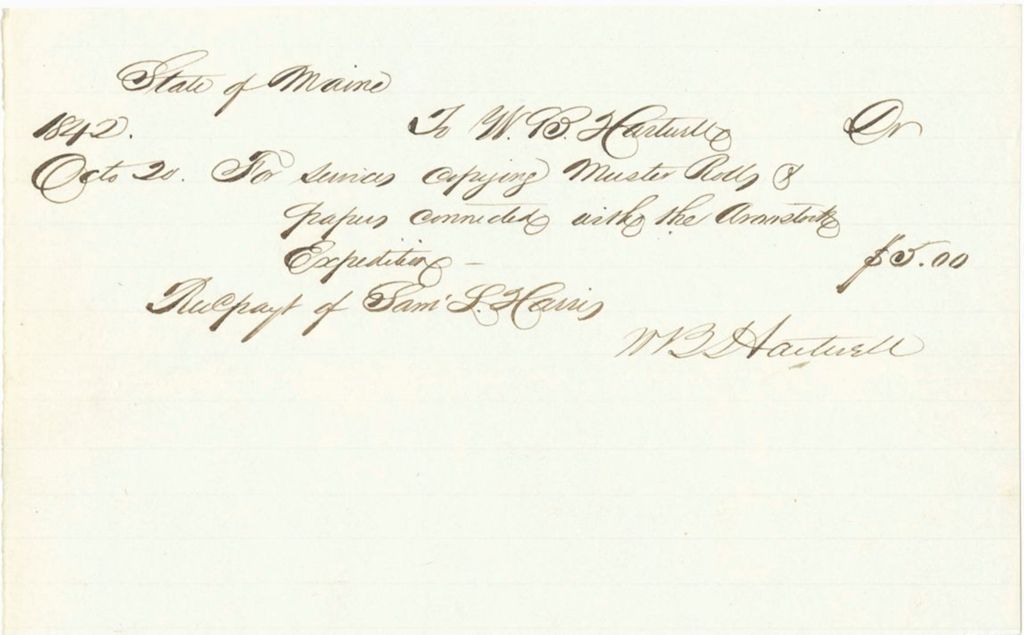 State of Maine
1842. To W. B. Hartwell Dr
Octo 20. For services copying Muster Rolls &
papers connected with the Aroostook
Expedition — $5.00
Rec'd payt of Sam' L. Harris
W B Hartwell